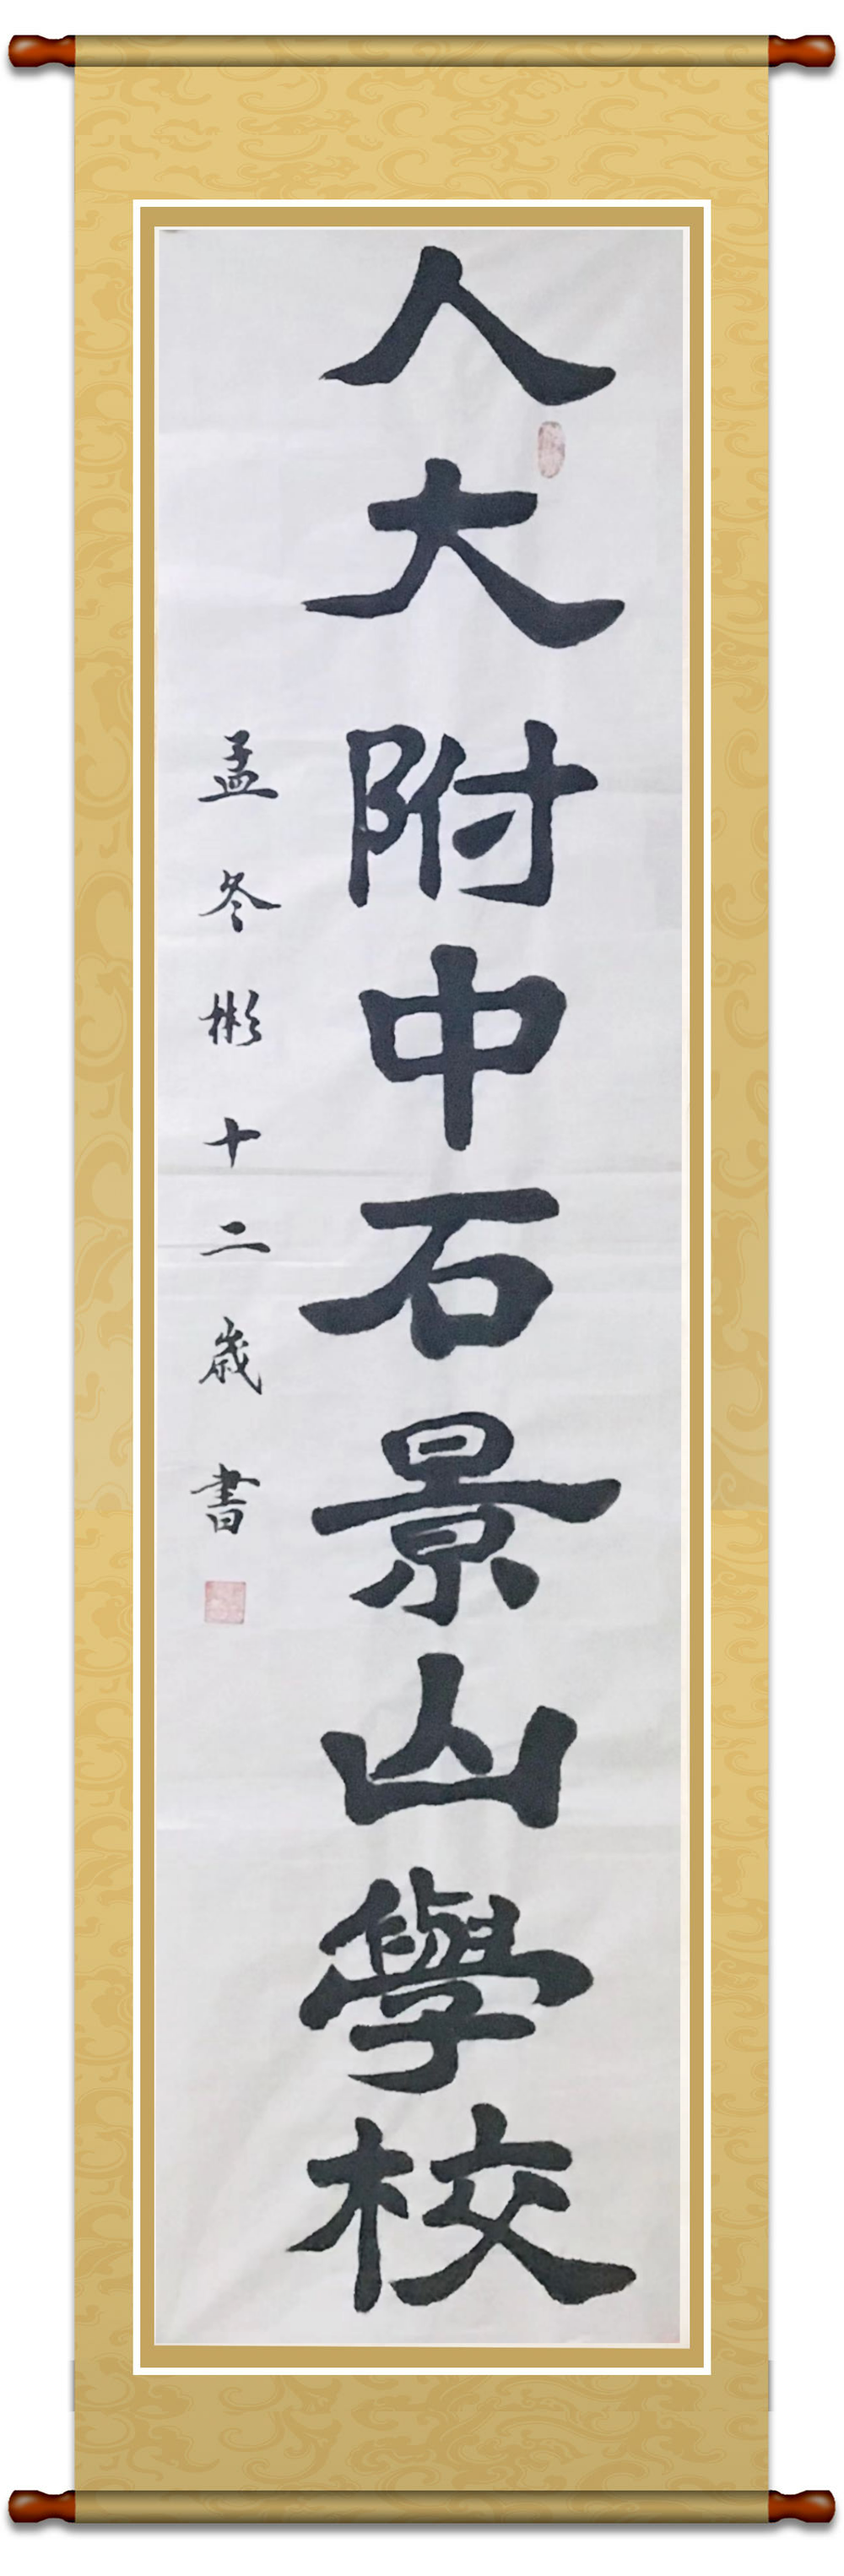 人大附中石景山學校
孟冬彬十二歲書